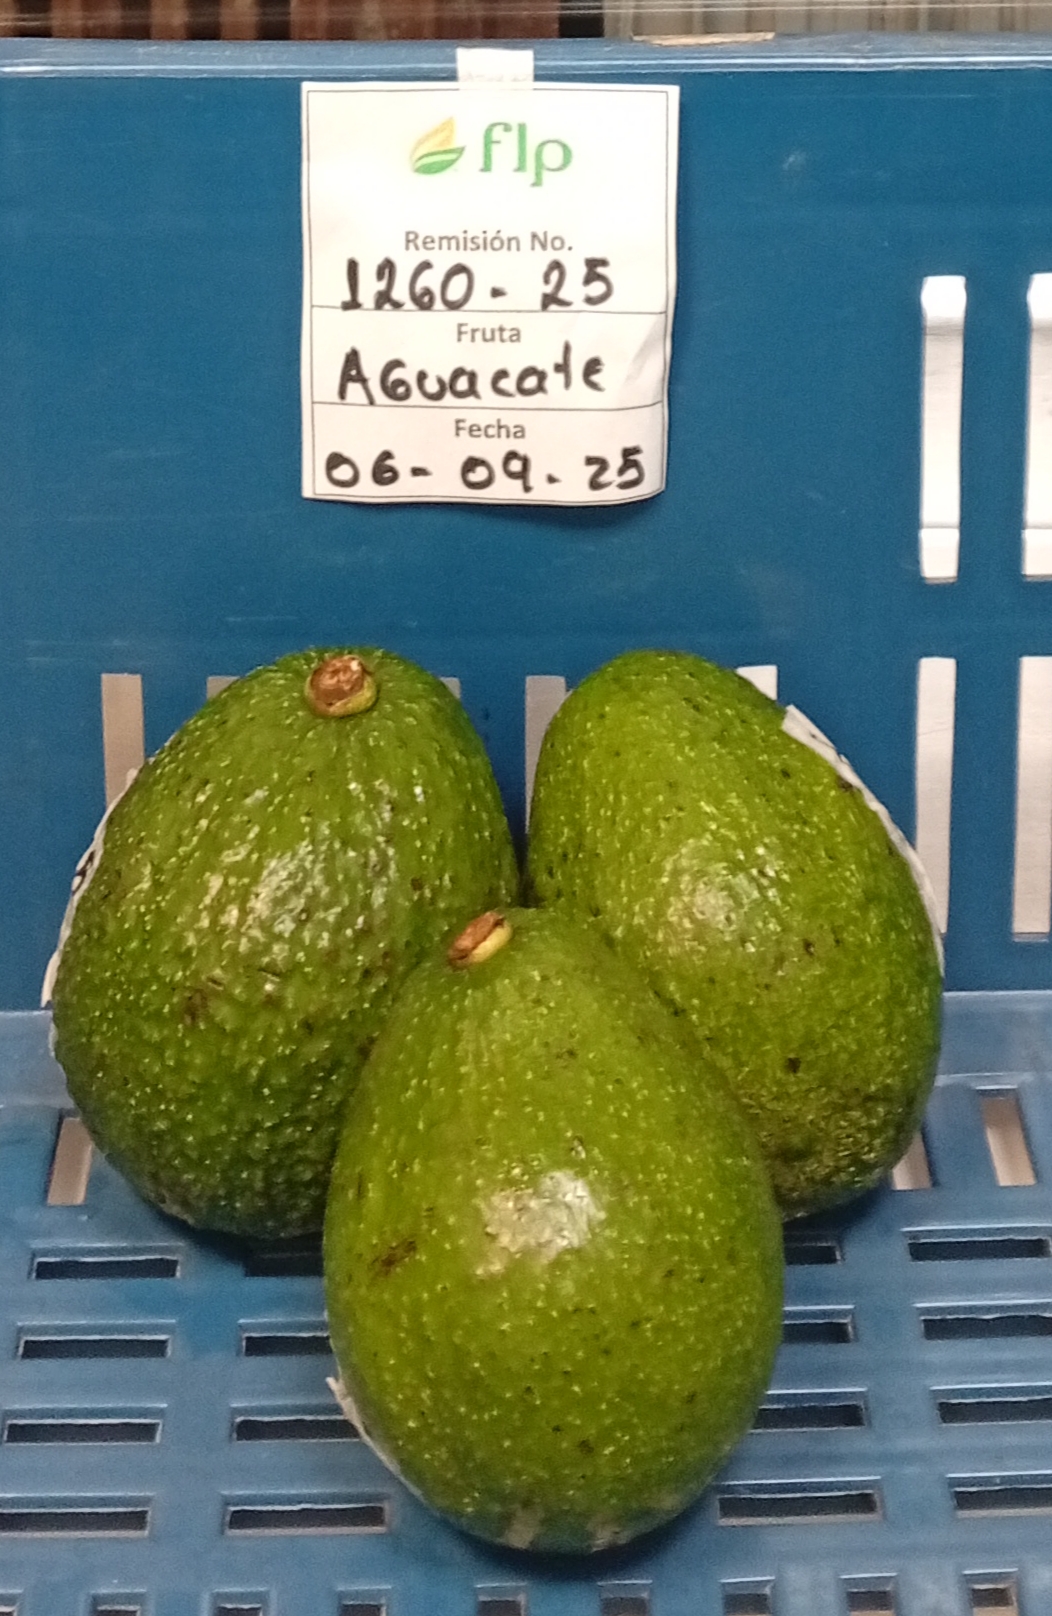 flp
Remisión No.
1260-25
Fruta
AGuacate
Fecha
06-09.25